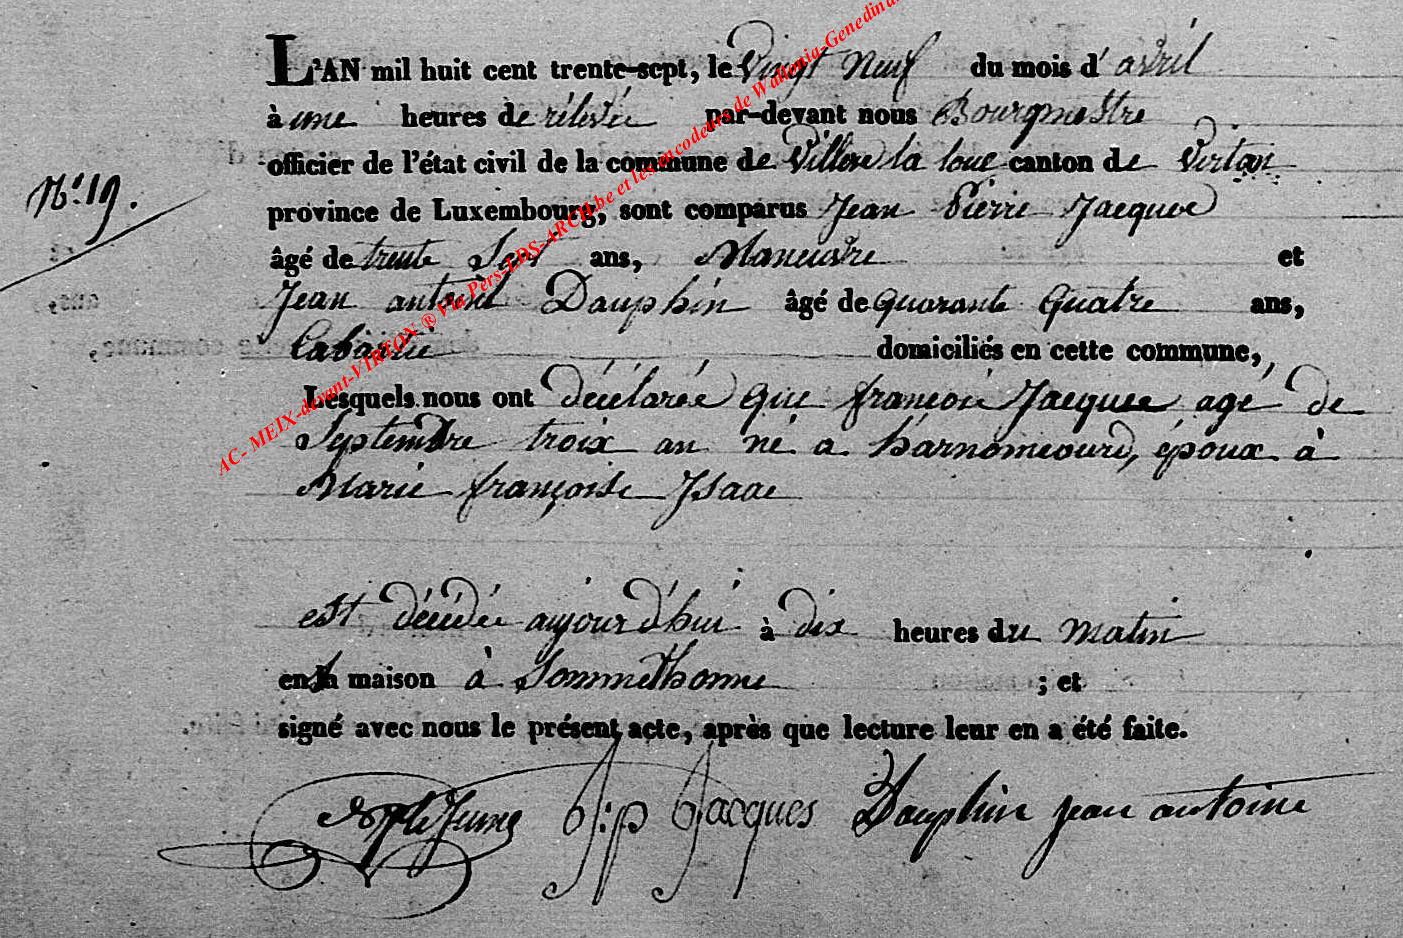 L'AN mil huit cent trente-sept, le Vingt Neuf du mois d' avril
à une heures de rélevée par-devant nous Bourgmestre
officier de l'état civil de la commune de Villere la loue canton de Virton
N.° 19.
province de Luxembourg, sont comparus Jean Pierre Jacques
âgé de trente Sept ans, Maneuvre et
Jean antoine Dauphin âgé de quarante quatre ans,
Cabartié domiciliés en cette commune,
Lesquels nous ont déclarée que françois Jacques agé de
Septembre troix an né a harnoncourd, époux à
Marie françoise Isaac
est décédée aujourd'hui à dix heures du matin
en sa maison à Sommethonne ; et
signé avec nous le présent acte, après que lecture leur en a été faite.
J:p Jacques Dauphin jean antoine
AC- MEIX-devant-VIRTON ® Via Pers-LDS-ARCH.be et les encodeurs de Wallonia-Genedinan